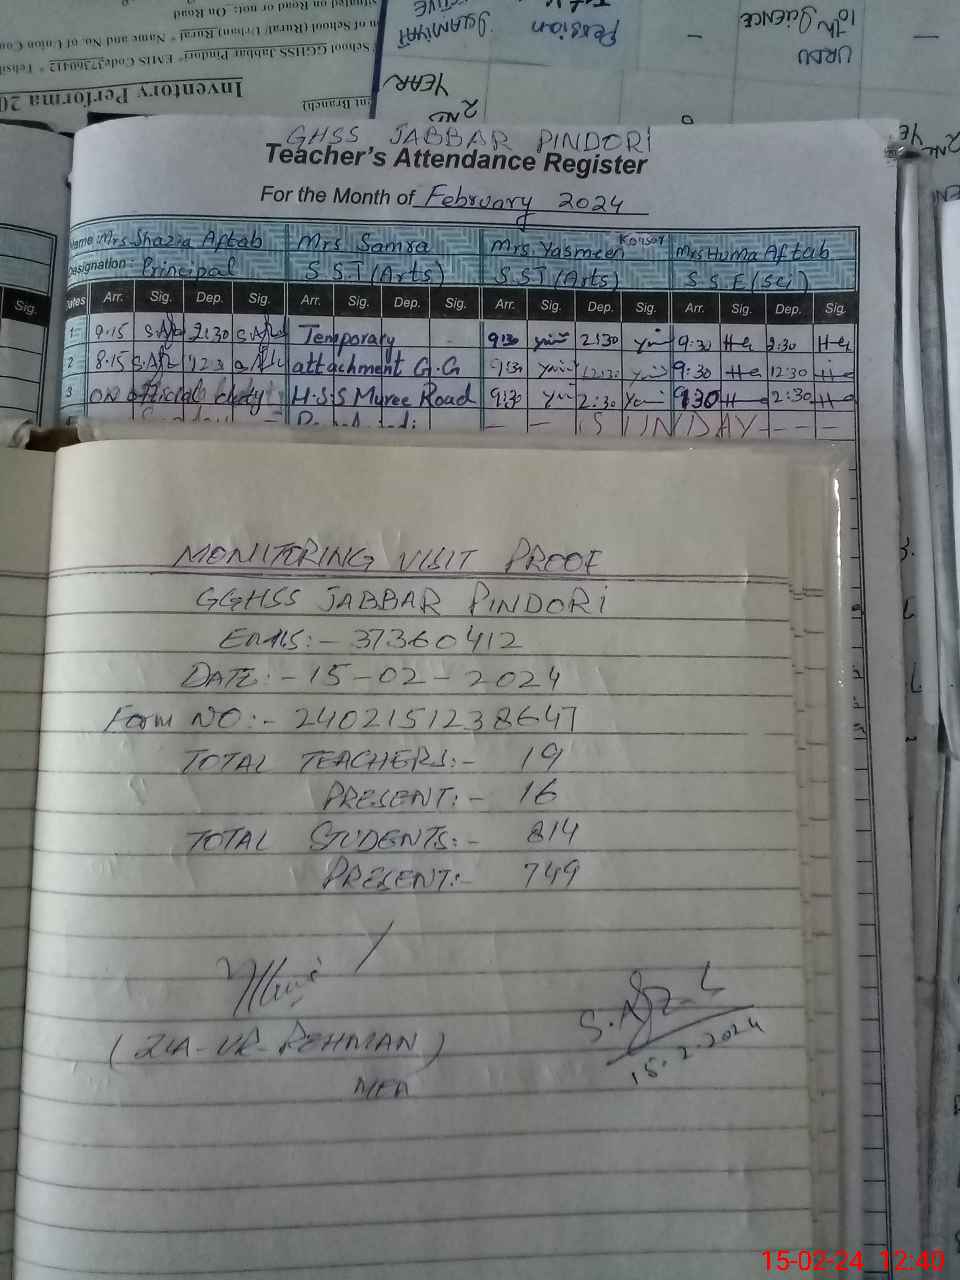 situated on Road or not: On Road
of School (Rural/ Urban) Rural * Name and No. of Union Cou
School GGHSS Jabbar Pindori * EMIS Code 37360412 * Tehsil
Inventory Performa 20
nt Branch)
ISLAMIYAT
Persian
10th Science
URDU
2ND
YEAR
GHSS JABBAR PINDORI
Teacher's Attendance Register
For the Month of February 2024
Name: Mrs Shazia Aftab Mrs Samra Mrs. Yasmeen Kousar Mrs Huma Aftab
Designation: Principal S.S.T (Arts) S.S.T (Arts) S.S.E (Sci)
Dates Arr. Sig. Dep. Sig. Arr. Sig. Dep. Sig. Arr. Sig. Dep. Sig. Arr. Sig. Dep. Sig.
Sig.
1 9.15 2:30 Temporary 9:30 2:30 9:30 2:30
2 8.15 12:3 attachment G.G 9:30 12:30 9:30 12:30
3 on official duty H.S.S Muree Road 9:30 2:30 9:30 2:30
SUNDAY
MONITORING VISIT PROOF
GGHSS JABBAR PINDORI
EMIS:- 37360412
DATE:- 15-02-2024
Form NO:- 2402151238647
TOTAL TEACHERS:- 19
PRESENT:- 16
TOTAL STUDENTS:- 814
PRESENT:- 749
(ZIA-UR-REHMAN)
MEA
15.2.2024
15-02-24 12:40